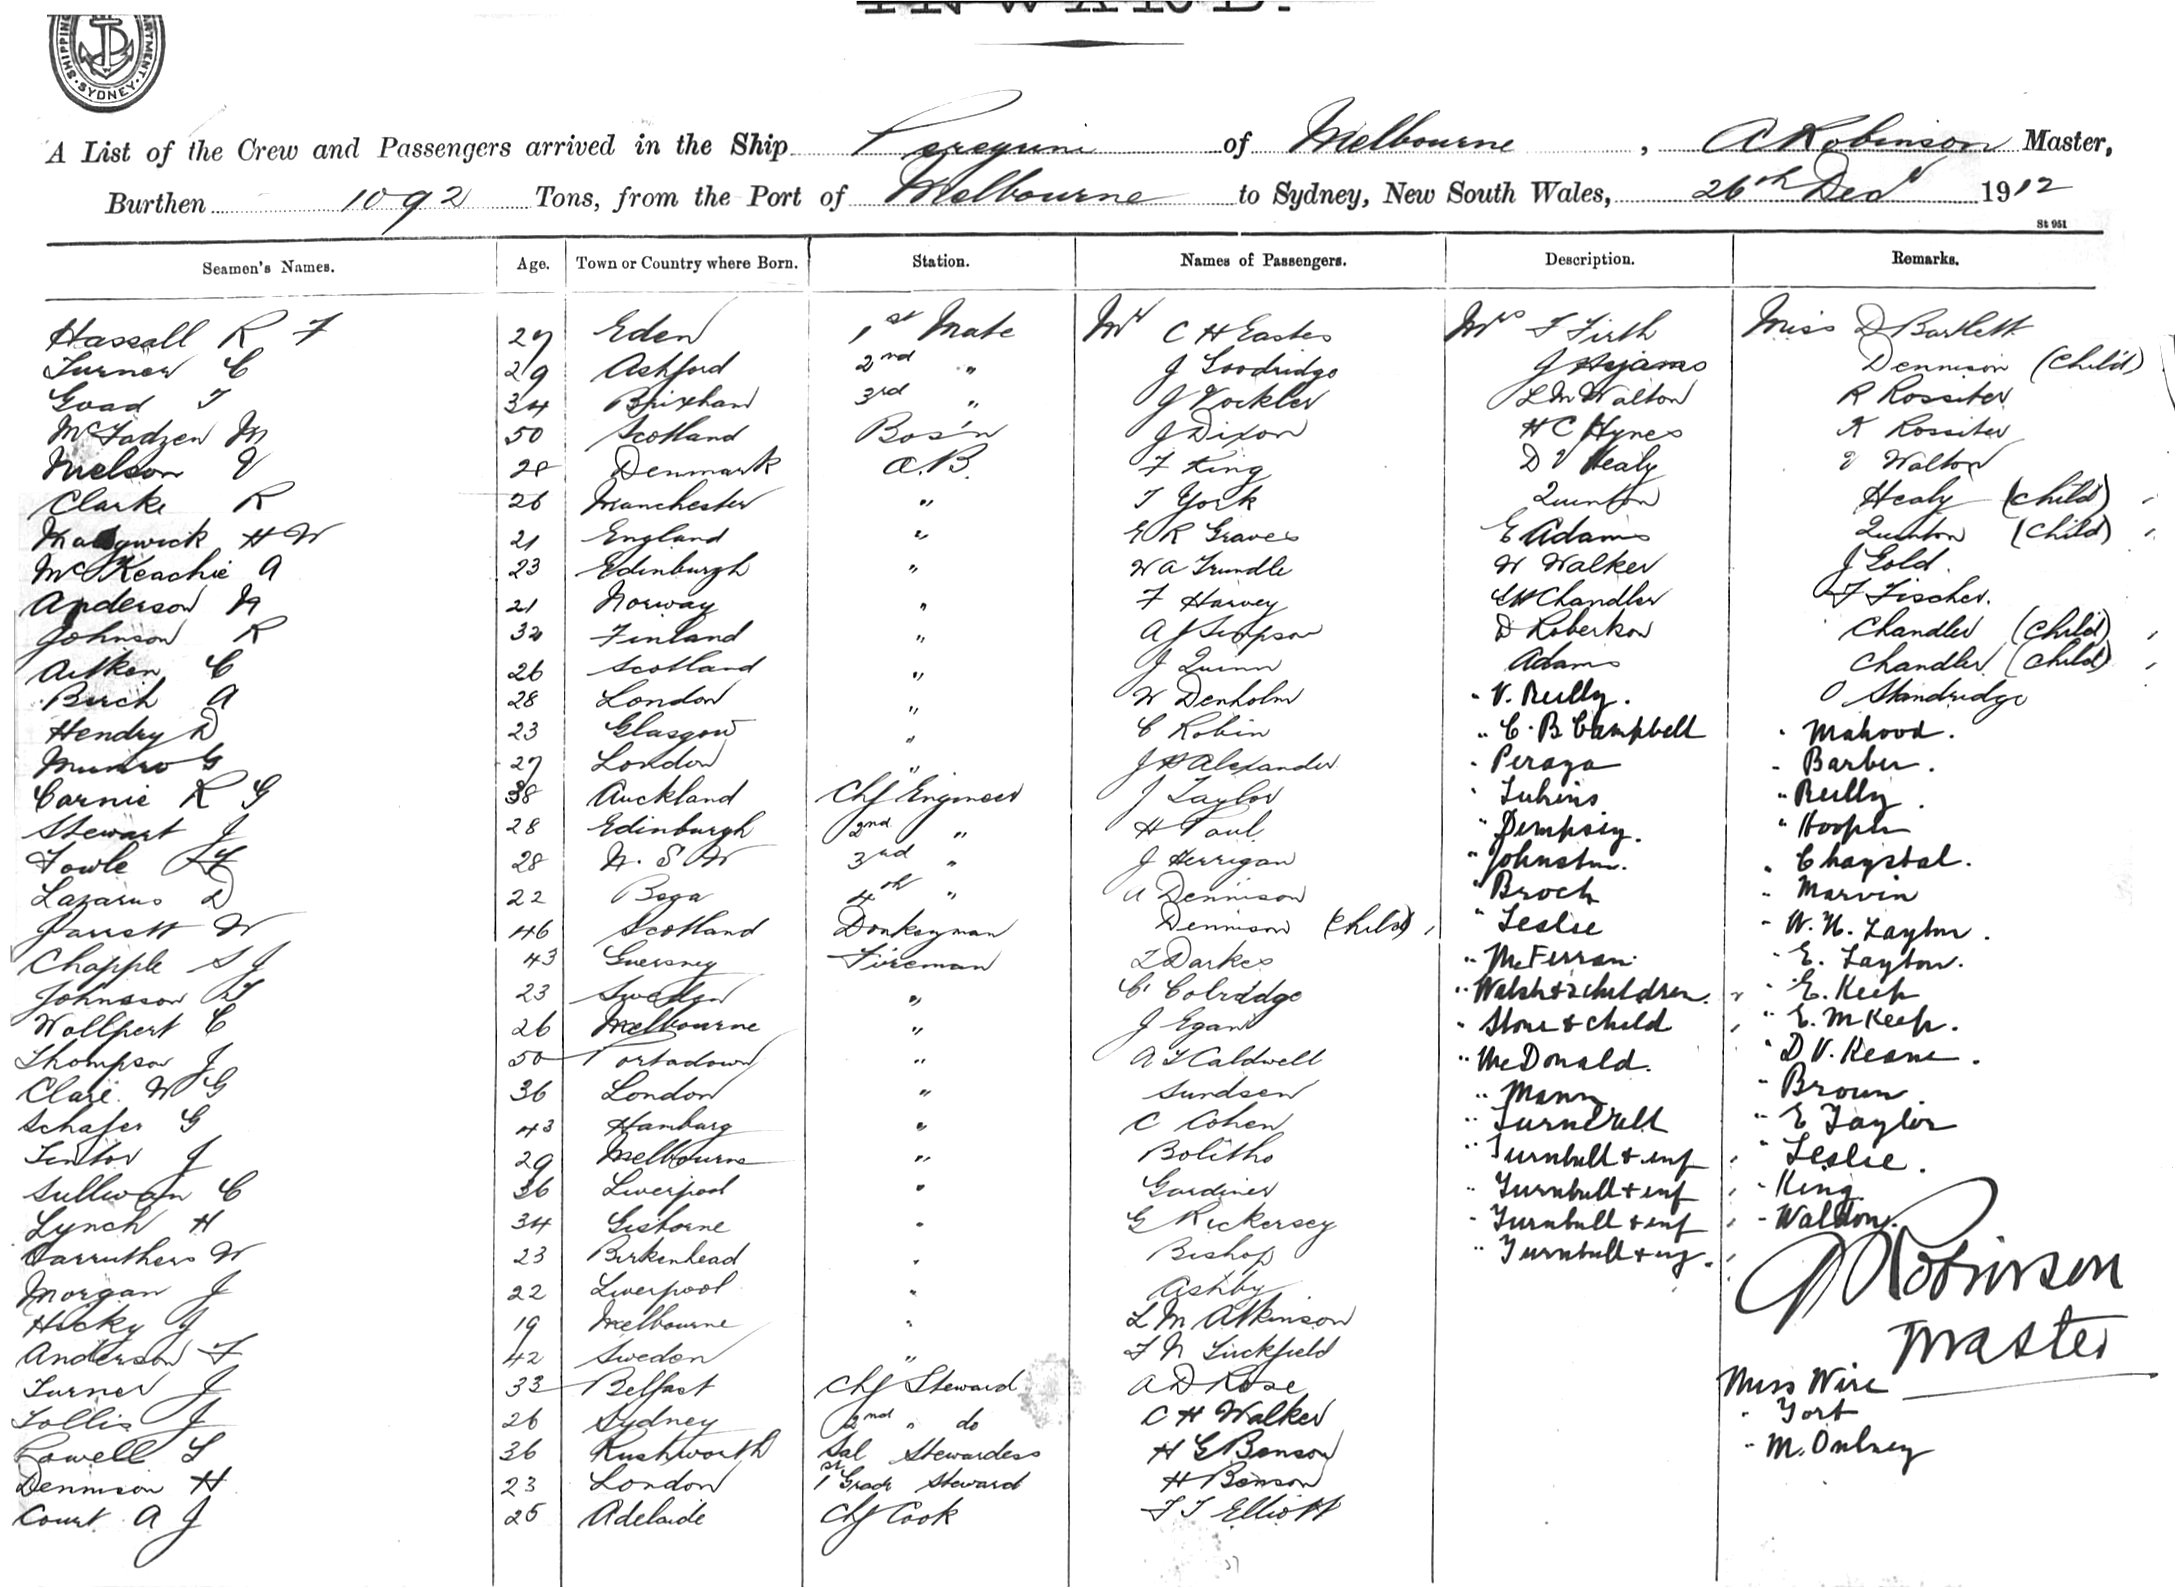 INWARD.
SHIPPING DEPARTMENT SYDNEY
A List of the Crew and Passengers arrived in the Ship Peregrine of Melbourne, A Robinson Master,
Burthen 1092 Tons, from the Port of Melbourne to Sydney, New South Wales, 26th Decr 1912
St 951
Seamen's Names. Age. Town or Country where Born. Station. Names of Passengers. Description. Remarks.
Hassall R F 27 Eden 1st Mate Mr C H Eastes Mrs F Firth Miss D Bartlett
Turner C 29 Ashford 2nd " J Goodridge J Hyams Dennison (Child)
Goad T 34 Brixham 3rd " J Vockler L M Walton R Rossiter
McFadzen M 50 Scotland Bos'n J Dixon H C Hynes K Rossiter
Nielson V 28 Denmark A.B. F King D V Healy V Walton
Clarke R 26 Manchester " T York Quinton Healy (Child)
H W 21 England " E R Graves E Adams Quinton (Child)
McKeachie A 23 Edinburgh " W A Trundle W Walker J Gold.
Anderson N 21 Norway " F Harvey E H Chandler F Fischer.
Johnson R 32 Finland " A J Simpson D Robertson Chandler (Child)
Aitken C 26 Scotland " J Quinn Adams Chandler (Child)
Birch A 28 London " W Denholm " V. Reilly. O Standridge
Hendry D 23 Glasgow " C Robin " C. B Campbell " Mahood.
Munro G 27 London " J H Alexander " Peraza " Barber.
Carnie R G 38 Auckland Chf Engineer J Taylor " " Reilly.
Stewart J 28 Edinburgh 2nd " H Paul " Dempsey. " Hooper
Fowle 28 N. S W 3rd " J Herrigan " Johnston. " Chrystal.
Lazarus D 22 Bega 4th " A Dennison " Broch " Marvin
Jarrett W 46 Scotland Donkeyman Dennison (Child) " Leslie " W. H. Layton.
Chapple S J 43 Guersney Fireman L Darkes " McFerran. " E. Layton.
Johnsson 23 Sweden " C Colridge " Walsh & 2 children. " E. Keep
Wollpert C 26 Melbourne " J Egan " Stone & child " E. M Keep.
Thompson J 50 Portadown " A L Caldwell " McDonald. " D V. Keane.
Clare. W G 36 London " Sundsen " Mann " Brown.
Schafer G 43 Hamburg " C Cohen " " E Taylor
Fenton J 29 Melbourne " Bolitho " Turnbull & inf " Leslie.
Sullivan C 36 Liverpool " Gardiner " Turnbull & inf " King
Lynch H 34 Gisborne " G Rickersey " Turnbull & inf " Waldon.
Carruthers W 23 Birkenhead " Bishop " Turnbull & inf.
Morgan J 22 Liverpool " Ashby A Robinson
Hicky J 19 Melbourne " L M Atkinson Master
Anderson F 42 Sweden " F N Luckfield
Turner J 33 Belfast Chf Steward A D Rose Miss Wire
Tollis J 26 Sydney 2nd " do C H Walker " York
Powell L 36 Rushworth Sal Stewardess H G Benson " M.
Dennison H 23 London 1st Grade Steward H Benson
Court A J 25 Adelaide Chf Cook F T Elliott